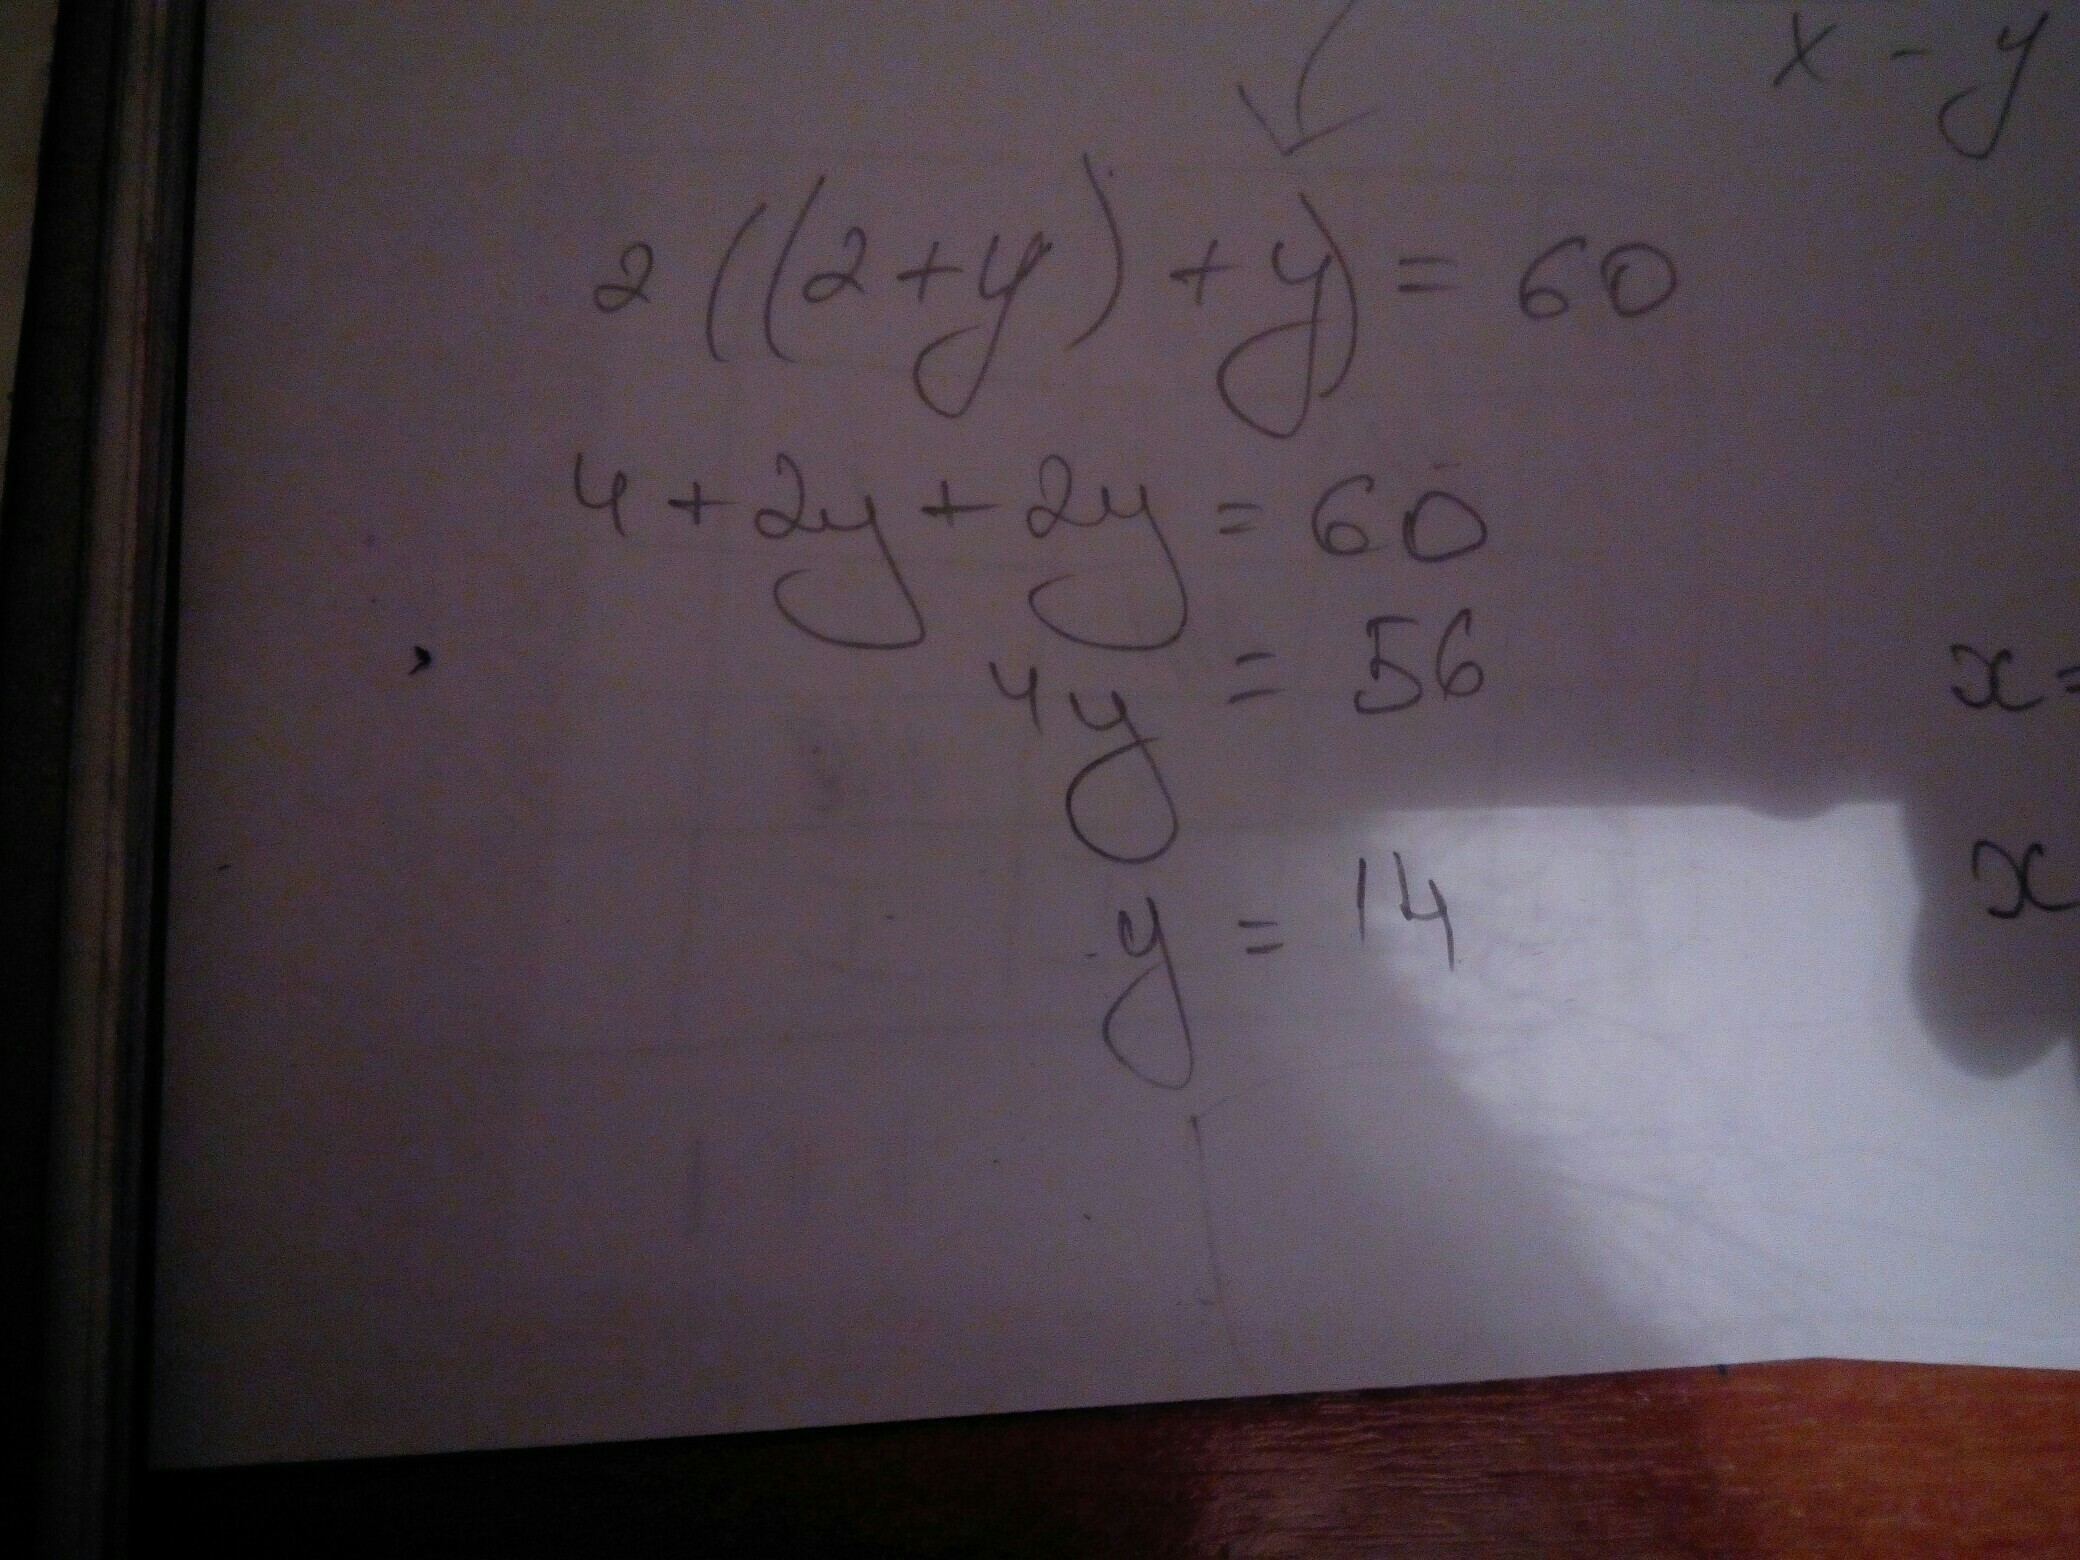 x - y
2((2+y)+y) = 60
4+2y+2y = 60
4y = 56
x=
y = 14
x